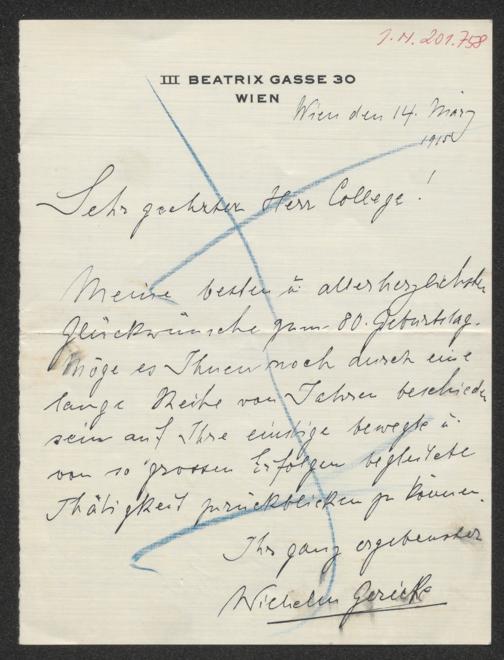 I.N. 201.758
III BEATRIX GASSE 30
WIEN
Wien den 14. März
Sehr geehrter Herr College!
Meine besten u. allerherzlichsten
Glückwünsche zum 80. Geburtstag.
Möge es Ihnen noch durch eine
lange Reihe von Jahren beschieden
sein auf Ihre einstige bewegte u.
von so grossen Erfolgen begleitete
Thätigkeit zurückblicken zu können.
Ihr ganz ergebenster
Wilhelm Gericke